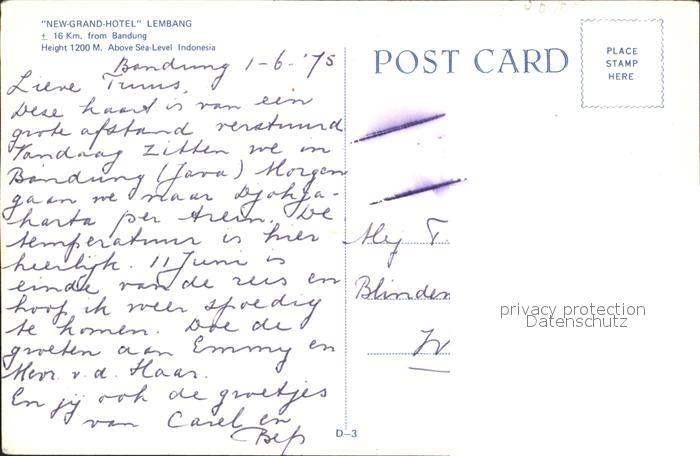 "NEW-GRAND-HOTEL" LEMBANG
± 16 Km. from Bandung
Height 1200 M. Above Sea-Level Indonesia
Bandung 1-6-'75
Lieve Truus,
Deze kaart is van een
grote afstand verstuurd
Vandaag zitten we in
Bandung (Java) Morgen
gaan we naar Djokja-
karta per trein. De
temperatuur is hier
heerlijk. 11 Juni is
einde van de reis en
hoop ik weer spoedig
te komen. Doe de
groeten aan Emmy en
Mevr. v. d. Haar.
En jij ook de groetjes
van Carel en
Bep
D-3
POST CARD
PLACE
STAMP
HERE
Mej T.
Blinden
privacy protection
Datenschutz